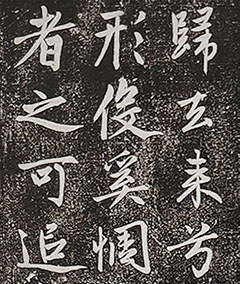 歸去来兮
形役奚惆
者之可追